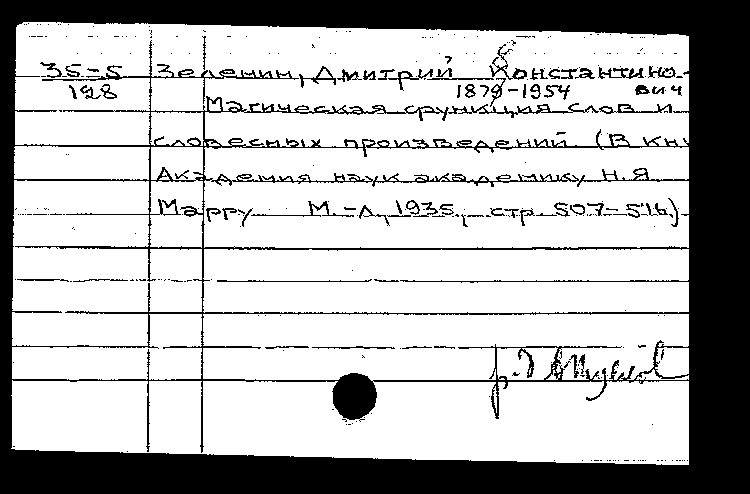 35-5 Зеленин, Дмитрий Константино-
128 1879-1954 вич
Магическая функция слов и
словесных произведений. (В кн
Академия наук академику Н.Я.
Марру М.-Л., 1935, стр. 507-516.)